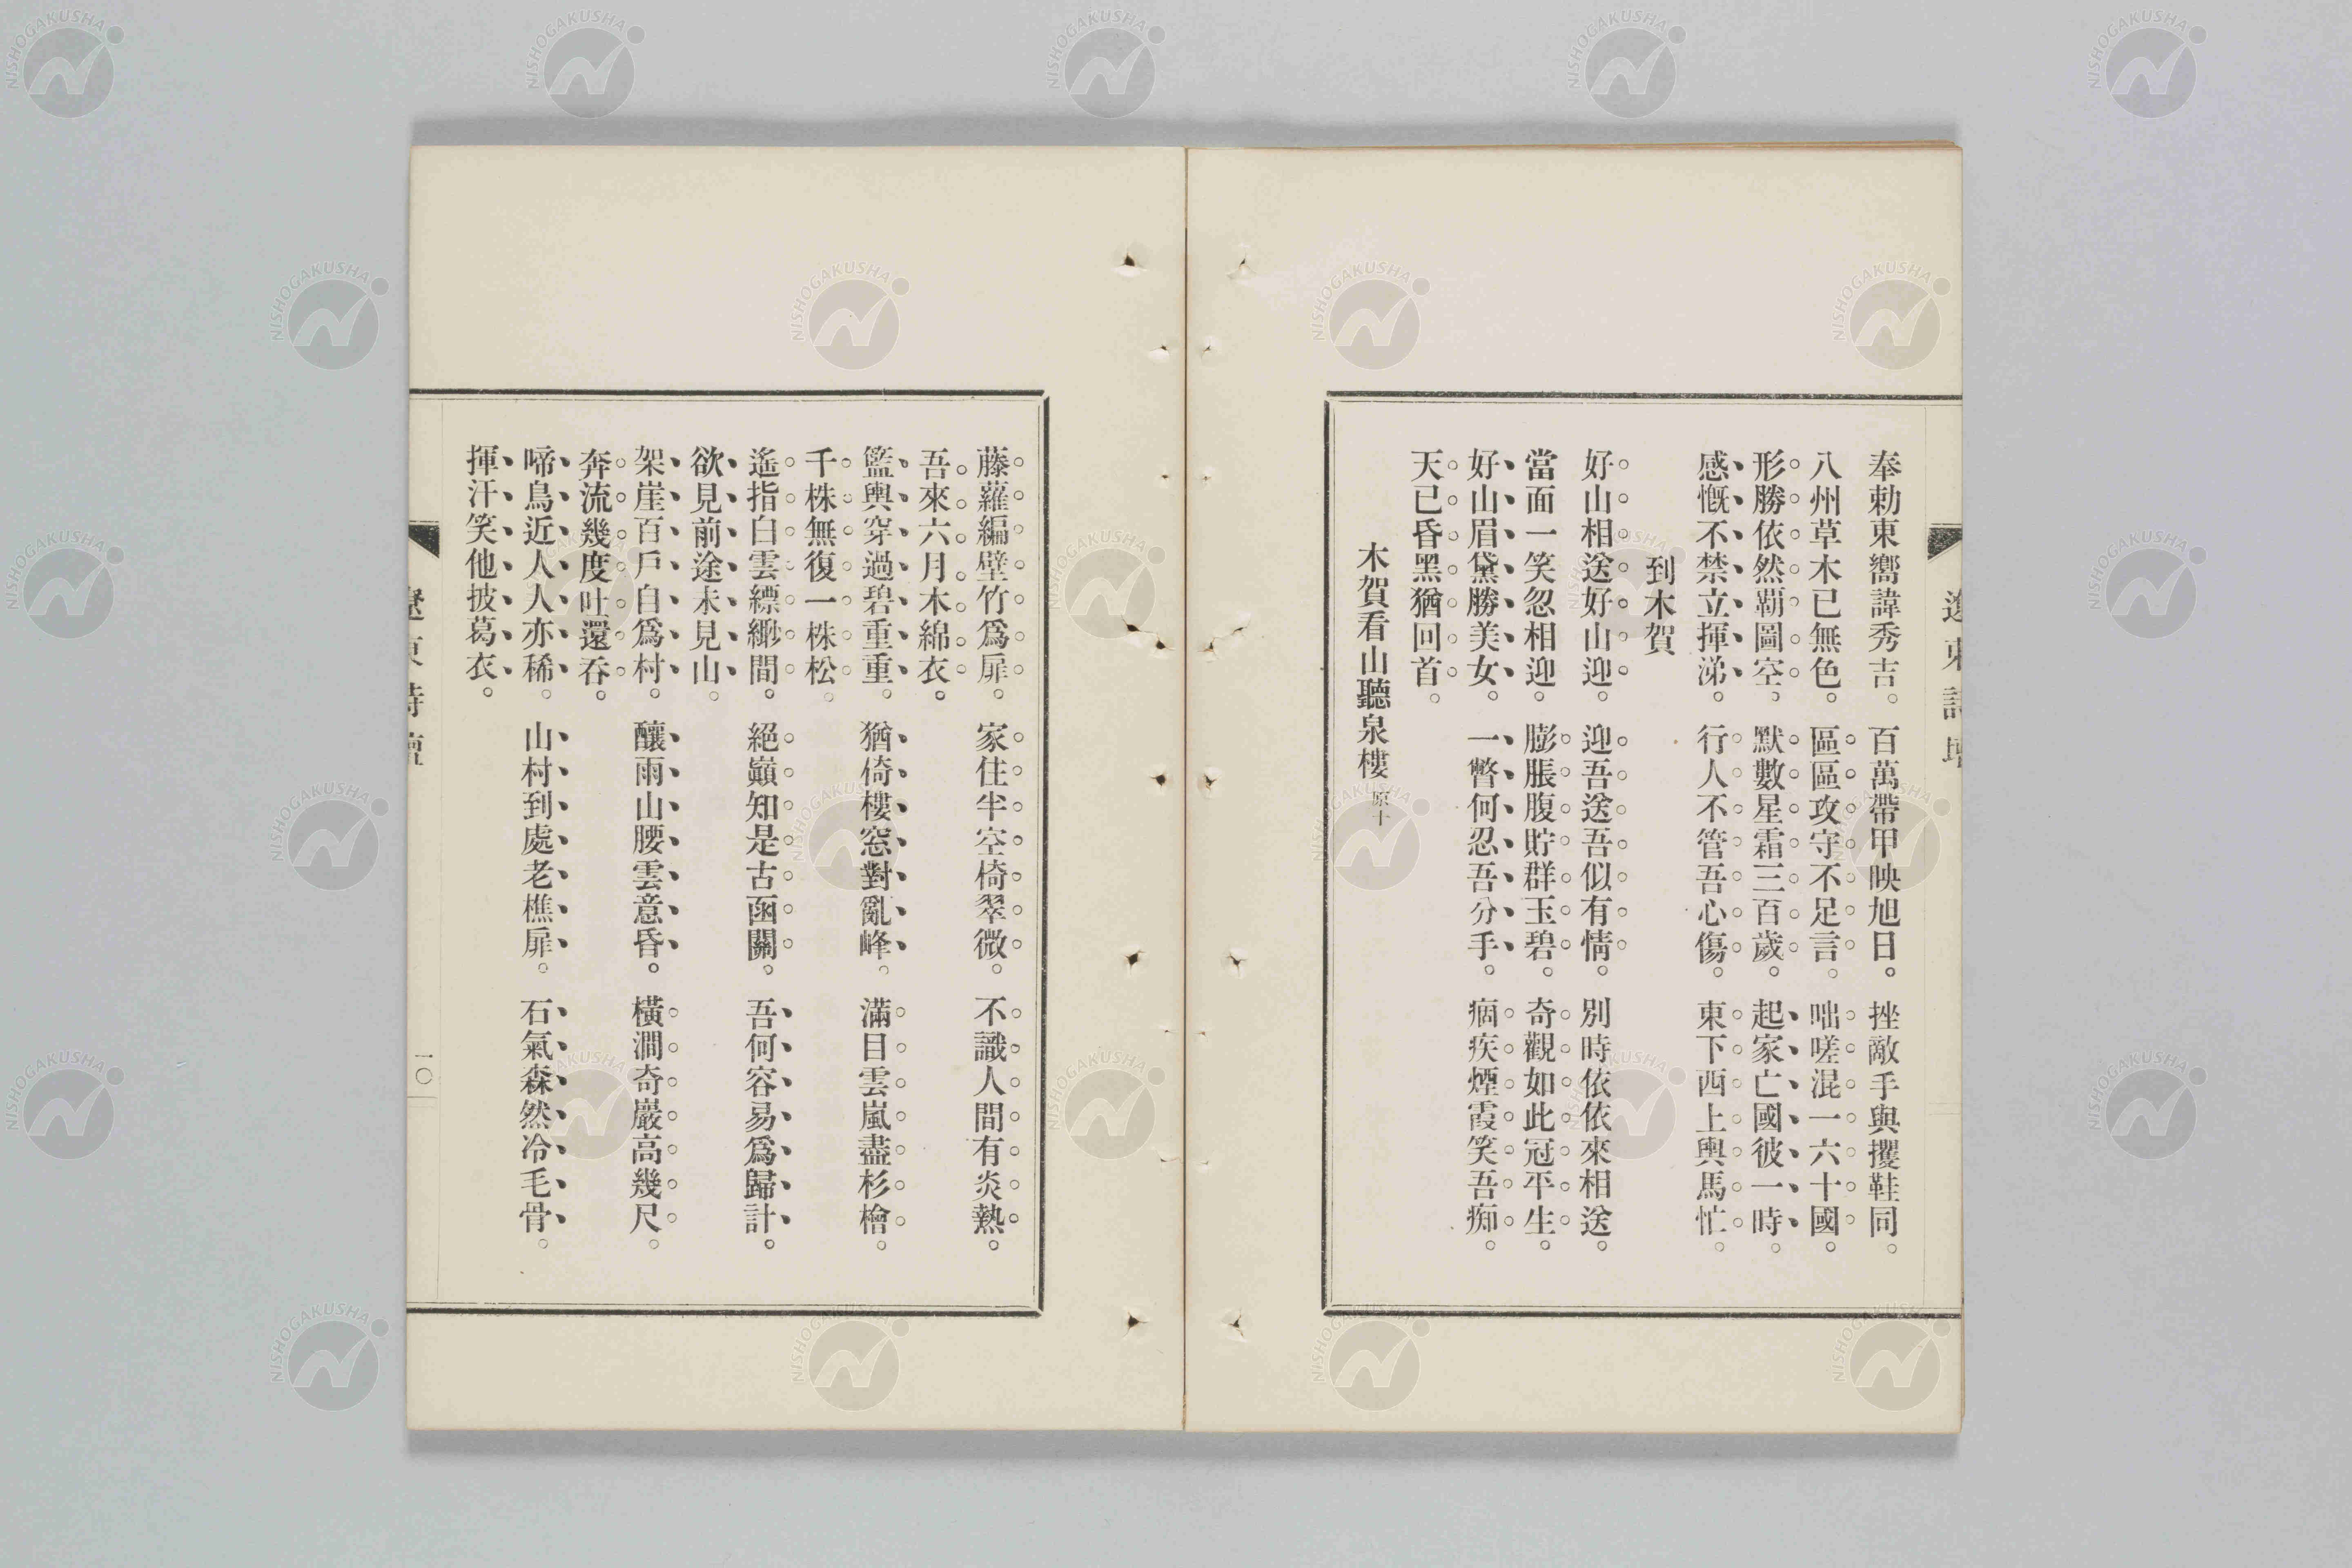 奉勅東嚮諱秀吉。百萬帶甲映旭日。挫敵手與攫鞋同。
八州草木已無色。區區攻守不足言。咄嗟混一六十國。
形勝依然覇圖空。默數星霜三百歲。起家亡國彼一時。
感慨不禁立揮涕。行人不管吾心傷。東下西上輿馬忙。
到木賀
好山相送好山迎。迎吾送吾似有情。別時依依來相送。
當面一笑忽相迎。膨脹腹貯群玉碧。奇觀如此冠平生。
好山眉黛勝美女。一瞥何忍吾分手。痼疾煙霞笑吾痴。
天已昏黑猶回首。
木賀看山聽泉樓 原十
藤蘿編壁竹爲扉。家住半空椅翠微。不識人間有炎熱。
吾來六月木綿衣。
籃輿穿過碧重重。猶倚樓窓對亂峰。滿目雲嵐盡杉檜。
千株無復一株松。
遙指白雲縹緲間。絕巓知是古函關。吾何容易爲歸計。
欲見前途未見山。
架崖百戶自爲村。釀雨山腰雲意昏。橫澗奇巖高幾尺。
奔流幾度吐還吞。
啼鳥近人人亦稀。山村到處老樵扉。石氣森然冷毛骨。
揮汗笑他披葛衣。
一〇
NISHOGAKUSHA